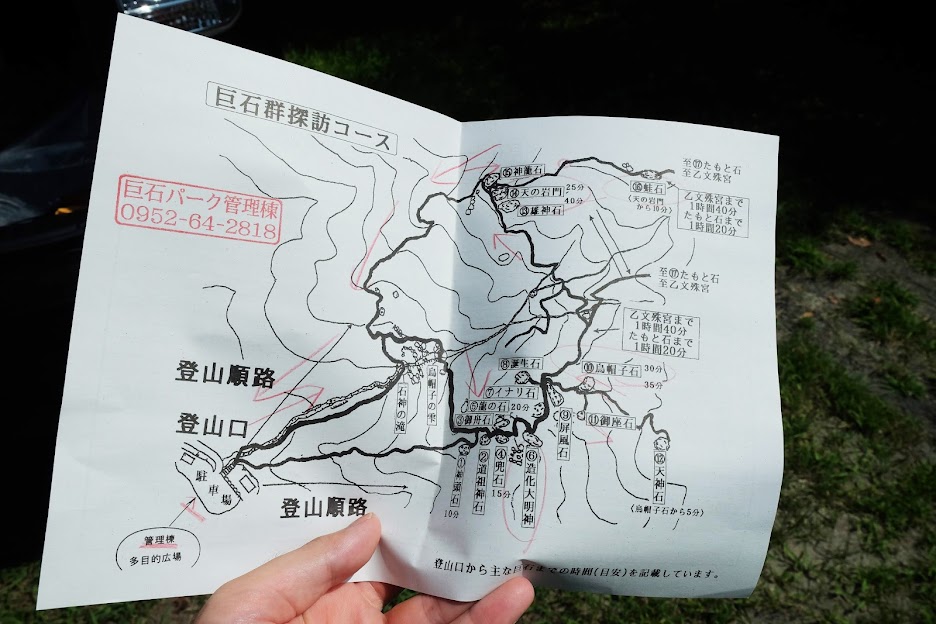 巨石群探訪コース
巨石パーク管理棟
0952-64-2818
⑮神籠石
⑭天の岩門
25分
40分
⑬雄神石
⑯蛙石
(天の岩門
から10分)
至⑰たもと石
至乙文殊宮
乙文殊宮まで
1時間40分
たもと石まで
1時間20分
至⑰たもと石
至乙文殊宮
乙文殊宮まで
1時間40分
たもと石まで
1時間20分
登山順路
登山口
駐車場
管理棟
多目的広場
登山順路
石神の滝
烏帽子の雫
⑧誕生石
⑦イナリ石
⑤龍の石
20分
③御舟石
10分
②道祖神石
④兜石
15分
⑥造化大明神
⑨屏風石
⑩烏帽子石
30分
35分
⑪御座石
⑫天神石
(烏帽子石から5分)
登山口から主な巨石までの時間(目安)を記載しています。